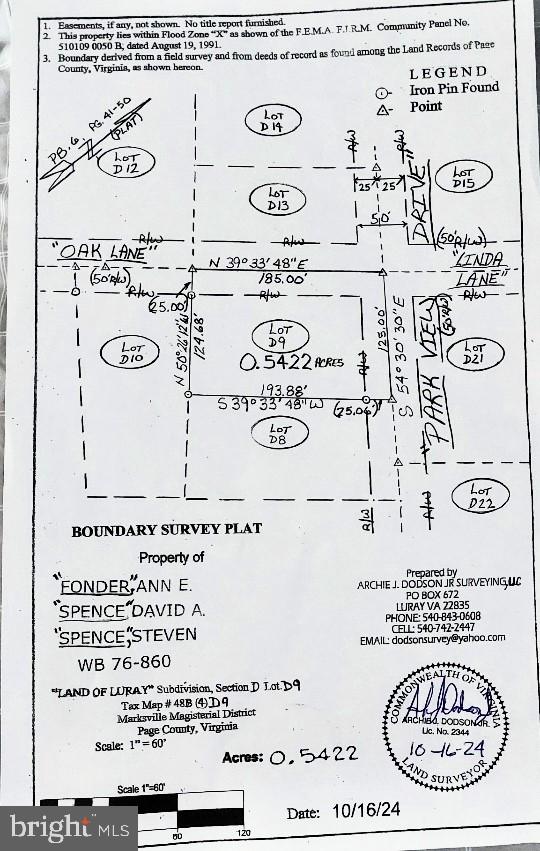 1. Easements, if any, not shown. No title report furnished.
2. This property lies within Flood Zone "X" as shown of the F.E.M.A. F.I.R.M. Community Panel No.
510109 0050 B, dated August 19, 1991.
3. Boundary derived from a field survey and from deeds of record as found among the Land Records of Page
County, Virginia, as shown hereon.
LEGEND
Iron Pin Found
Point
PB. 6 PG. 41-50
(PLAT)
LOT
D12
LOT
D14
LOT
D13
R/W
R/W
25' 25'
50'
"DRIVE"
LOT
D15
"OAK LANE"
R/W
R/W
(50'R/W)
(50'R/W)
N 39° 33' 48" E
185.00'
"LINDA
LANE"
R/W
R/W
R/W
(25.00')
N 50° 26' 12" W
124.68'
LOT
D10
LOT
D9
0.5422 ACRES
R/W
125.00'
S 54° 30' 30" E
"PARK VIEW
(50'R/W)
LOT
D21
193.88'
S 39° 33' 48" W
(25.06')
LOT
D8
R/W
R/W
LOT
D22
BOUNDARY SURVEY PLAT
Property of
"FONDER," ANN E.
"SPENCE," DAVID A.
"SPENCE," STEVEN
WB 76-860
"LAND OF LURAY" Subdivision, Section D Lot D9
Tax Map # 48B (4) D9
Marksville Magisterial District
Page County, Virginia
Scale: 1" = 60'
Acres: 0.5422
Prepared by
ARCHIE J. DODSON JR SURVEYING, LLC
PO BOX 672
LURAY VA 22835
PHONE: 540-843-0608
CELL: 540-742-2447
EMAIL: dodsonsurvey@yahoo.com
COMMONWEALTH OF VIRGINIA
ARCHIE J. DODSON JR.
Lic. No. 2344
10-16-24
LAND SURVEYOR
Scale 1"=60'
60 120
Date: 10/16/24
bright MLS